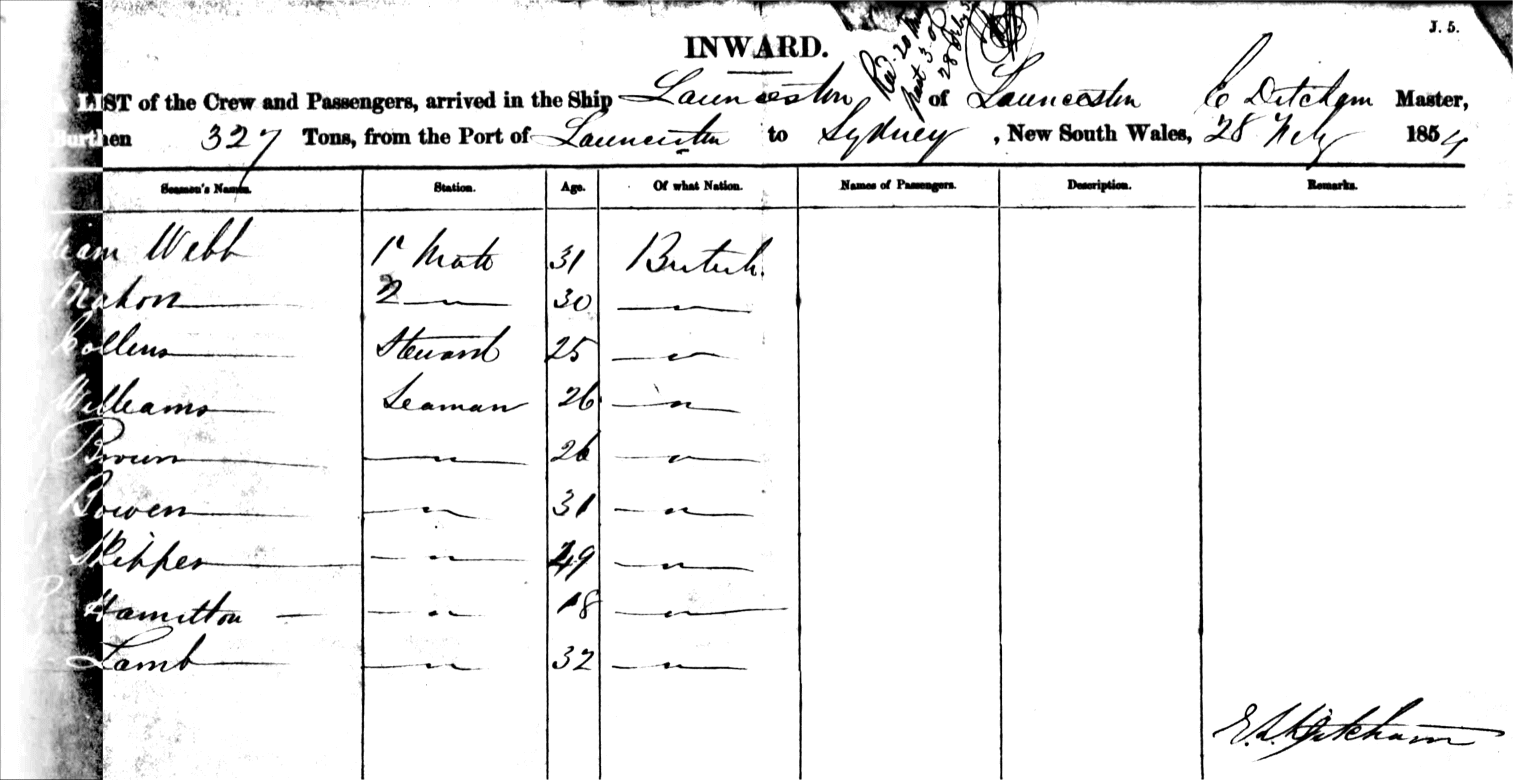 J. 5.
INWARD.
LIST of the Crew and Passengers, arrived in the Ship Launceston of Launceston E Ditcham Master,
Burthen 327 Tons, from the Port of Launceston to Sydney, New South Wales, 28 Feby 1854
Seamen's Names. Station. Age. Of what Nation. Names of Passengers. Description. Remarks.
liam Webb 1st Mate 31 British.
Mahon 2 — " — 30 — " —
Collens Steward 25 — " —
Williams Seaman 26 — " —
Brown — " — 26 — " —
Bowen — " — 31 — " —
Skipper — " — 49 — " —
Hamilton — " — 18 — " —
Lamb — " — 32 — " —
Ditcham